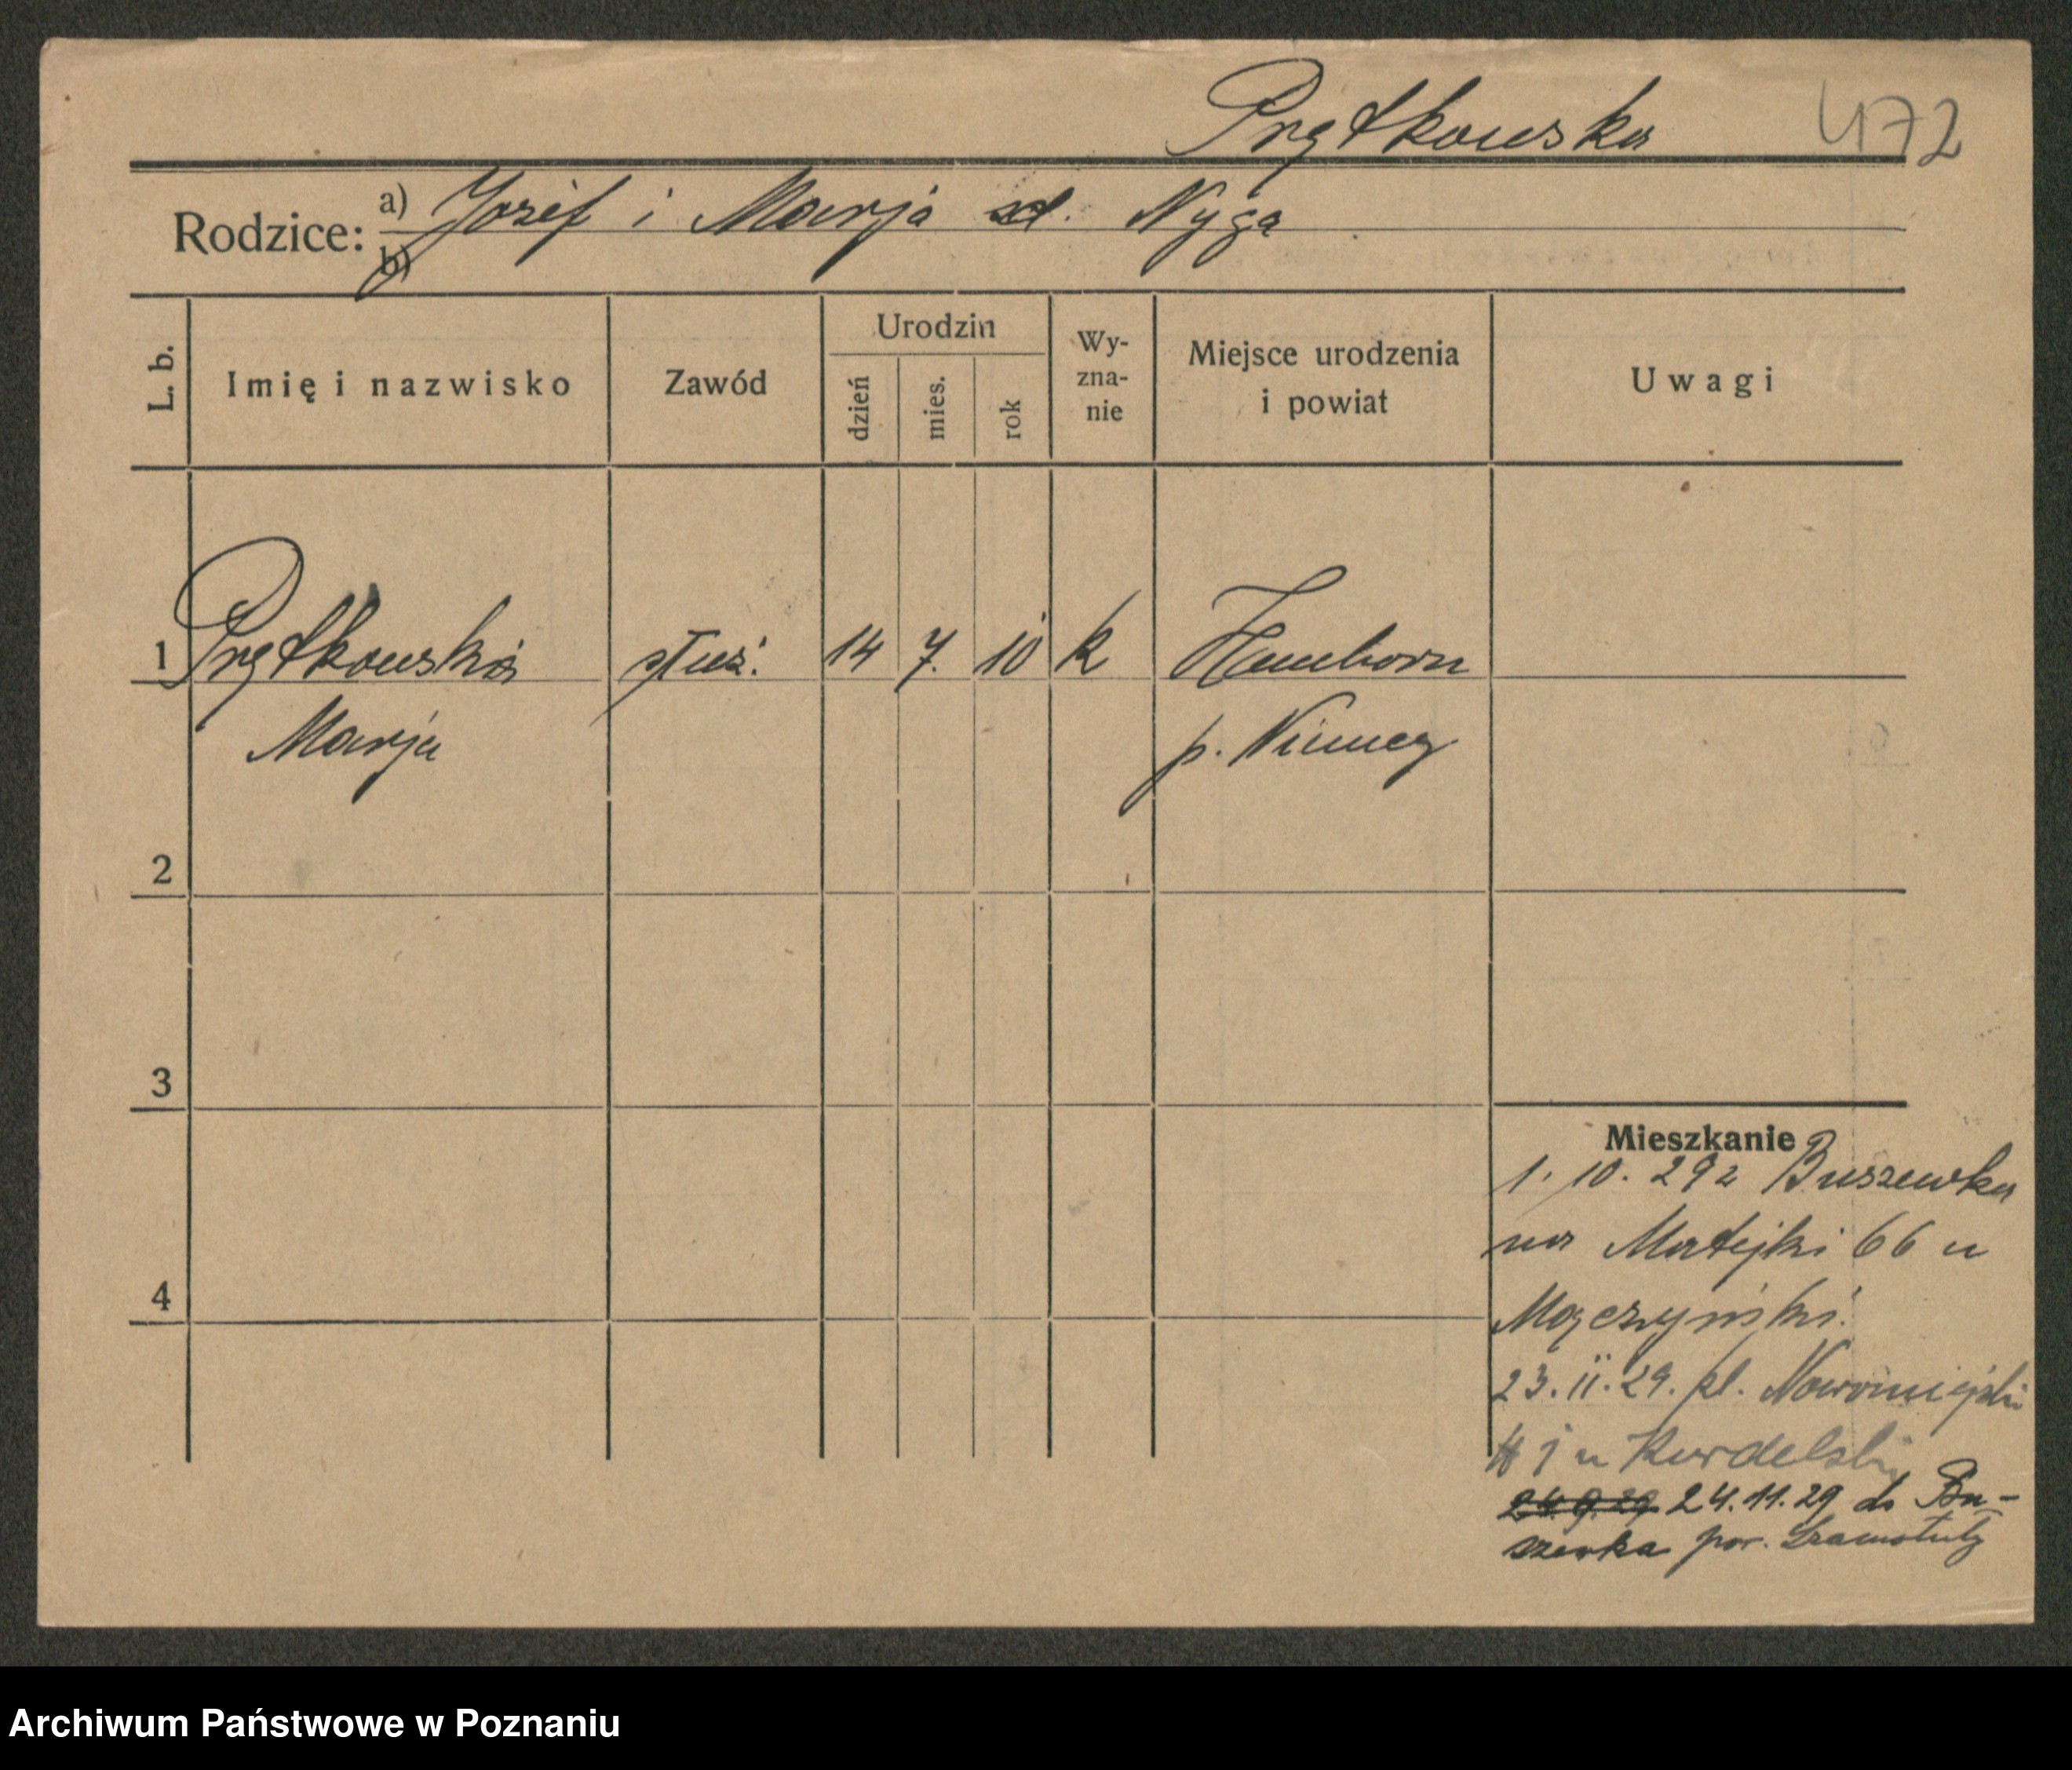 Prętkowska 472
Rodzice: a) Józef i Marja zd. Nyga
b)
L. b. Imię i nazwisko Zawód Urodzin dzień mies. rok Wy-zna-nie Miejsce urodzenia i powiat Uwagi
1 Prętkowska służ. 14 7. 10 k Hamborn
Marja p. Niemcy
2
3
4
Mieszkanie
1. 10. 29 z Buszewka
na Matejki 66 u
Mączyński.
23. 11. 29. pl. Nowomiejski
u Kurdelski
24.9.29 24.11.29 do Bu-
szewka pow. Szamotuły
Archiwum Państwowe w Poznaniu